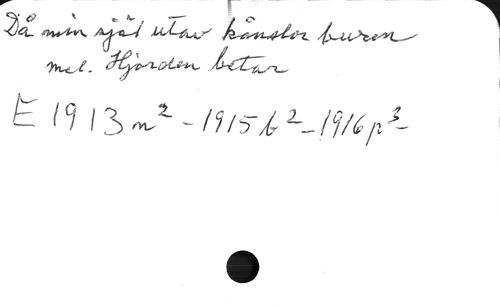 Då min själ utav känslor buren
mel. Hjorden betar
E 1913 n² - 1915 b² - 1916 p³ -